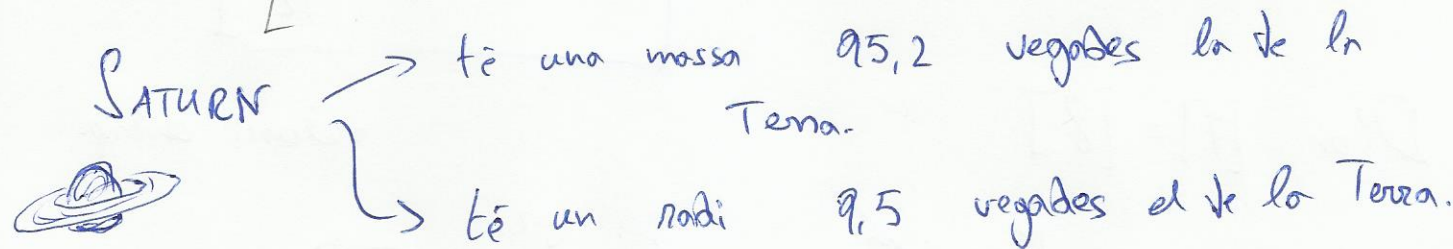 SATURN
té una massa 95,2 vegades la de la
Terra.
té un radi 9,5 vegades el de la Terra.